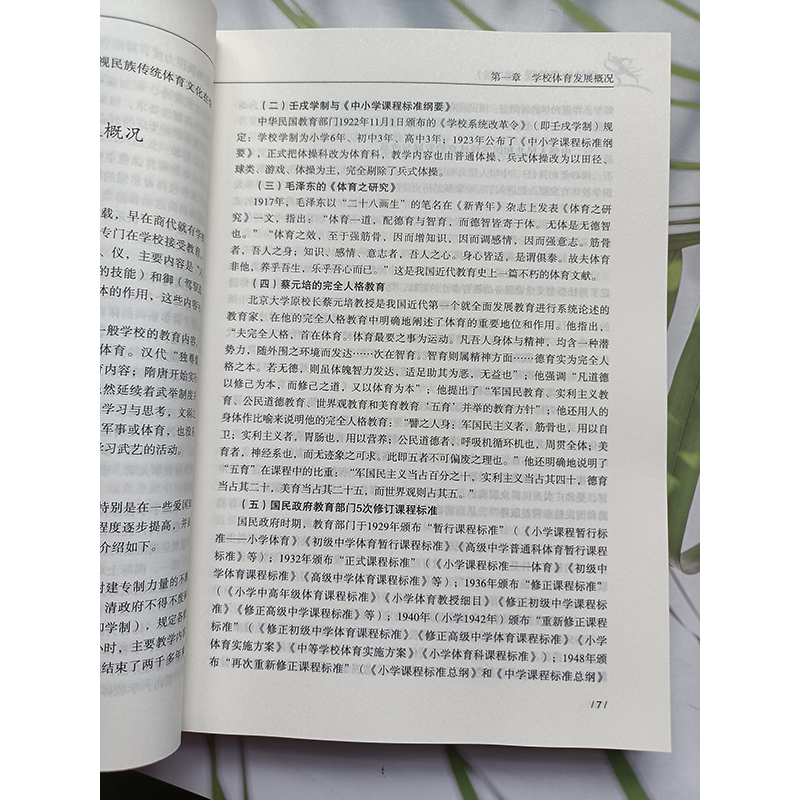 视民族传统体育文化在
概况
载，早在商代就有学
专门在学校接受教育
、仪，主要内容是“
的技能）和御（驾驭
体的作用，这些内容
一般学校的教育内容，
体育。汉代“独尊
育内容；隋唐开始实
然延续着武举制度
学习与思考，文
军事或体育，也没
学习武艺的活动。
特别是在一些爱国
程度逐步提高，并
介绍如下。
封建专制力量的不
清政府不得不废
卯学制），规定各
小时，主要教学内
结束了两千多年
第一章 学校体育发展概况
（二）壬戌学制与《中小学课程标准纲要》
中华民国教育部门1922年11月1日颁布的《学校系统改革令》（即壬戌学制）规
定：学校学制为小学6年、初中3年、高中3年；1923年公布了《中小学课程标准纲
要》，正式把体操科改为体育科，教学内容也由普通体操、兵式体操改为以田径、
球类、游戏、体操为主，完全剔除了兵式体操。
（三）毛泽东的《体育之研究》
1917年，毛泽东以“二十八画生”的笔名在《新青年》杂志上发表《体育之研
究》一文，指出：“体育一道，配德育与智育，而德智皆寄于体。无体是无德智
也。”“体育之效，至于强筋骨，因而增知识，因而调感情，因而强意志。筋骨
者，吾人之身；知识、感情、意志者，吾人之心。身心皆适，是谓俱泰。故夫体育
非他，养乎吾生，乐乎吾心而已。”这是我国近代教育史上一篇不朽的体育文献。
（四）蔡元培的完全人格教育
北京大学原校长蔡元培教授是我国近代第一个就全面发展教育进行系统论述的
教育家，在他的完全人格教育中明确地阐述了体育的重要地位和作用。他指出，
“夫完全人格，首在体育。体育最要之事为运动。凡吾人身体与精神，均含一种潜
势力，随外围之环境而发达……次在智育。智育则属精神方面……德育实为完全人
格之本。若无德，则虽体魄智力发达，适足助其为恶，无益也”；他强调“凡道德
以修己为本，而修己之道，又以体育为本”；他提出了“军国民教育、实利主义教
育、公民道德教育、世界观教育和美育教育‘五育’并举的教育方针”；他还用人的
身体作比喻来说明他的完全人格教育：“譬之人身：军国民主义，筋骨也，用以自
卫；实利主义者，胃肠也，用以营养；公民道德者、呼吸机循环机也，周贯全体；美
育者，神经系也，而无迹象之可求。此即五者不可偏废之理也。”他还明确地说明了
“五育”在课程中的比重：“军国民主义当占百分之十，实利主义当占其四十，德育
当占其二十，美育当占其二十五，而世界观则占其五。”
（五）国民政府教育部门5次修订课程标准
国民政府时期，教育部门于1929年颁布“暂行课程标准”（《小学课程暂行标
标——小学体育》《初级中学体育暂行课程标准》《高级中学普通科体育暂行课程
标准》等）；1932年颁布“正式课程标准”（《小学课程标准——体育》《初级中
学体育课程标准》《高级中学体育课程标准》等）；1936年颁布“修正课程标准”
（《小学中高年级体育课程标准》《小学体育教授细目》《修正初级中学课程标
准》《修正高级中学课程标准》等）；1940年（小学1942年）颁布“重新修正课程
标准”（《修正初级中学体育课程标准》《修正高级中学体育课程标准》《小学
体育实施方案》《中等学校体育实施方案》《小学体育科课程标准》）；1948年颁
布“再次重新修正课程标准”（《小学课程标准总纲》和《中学课程标准总纲》
/ 7 /